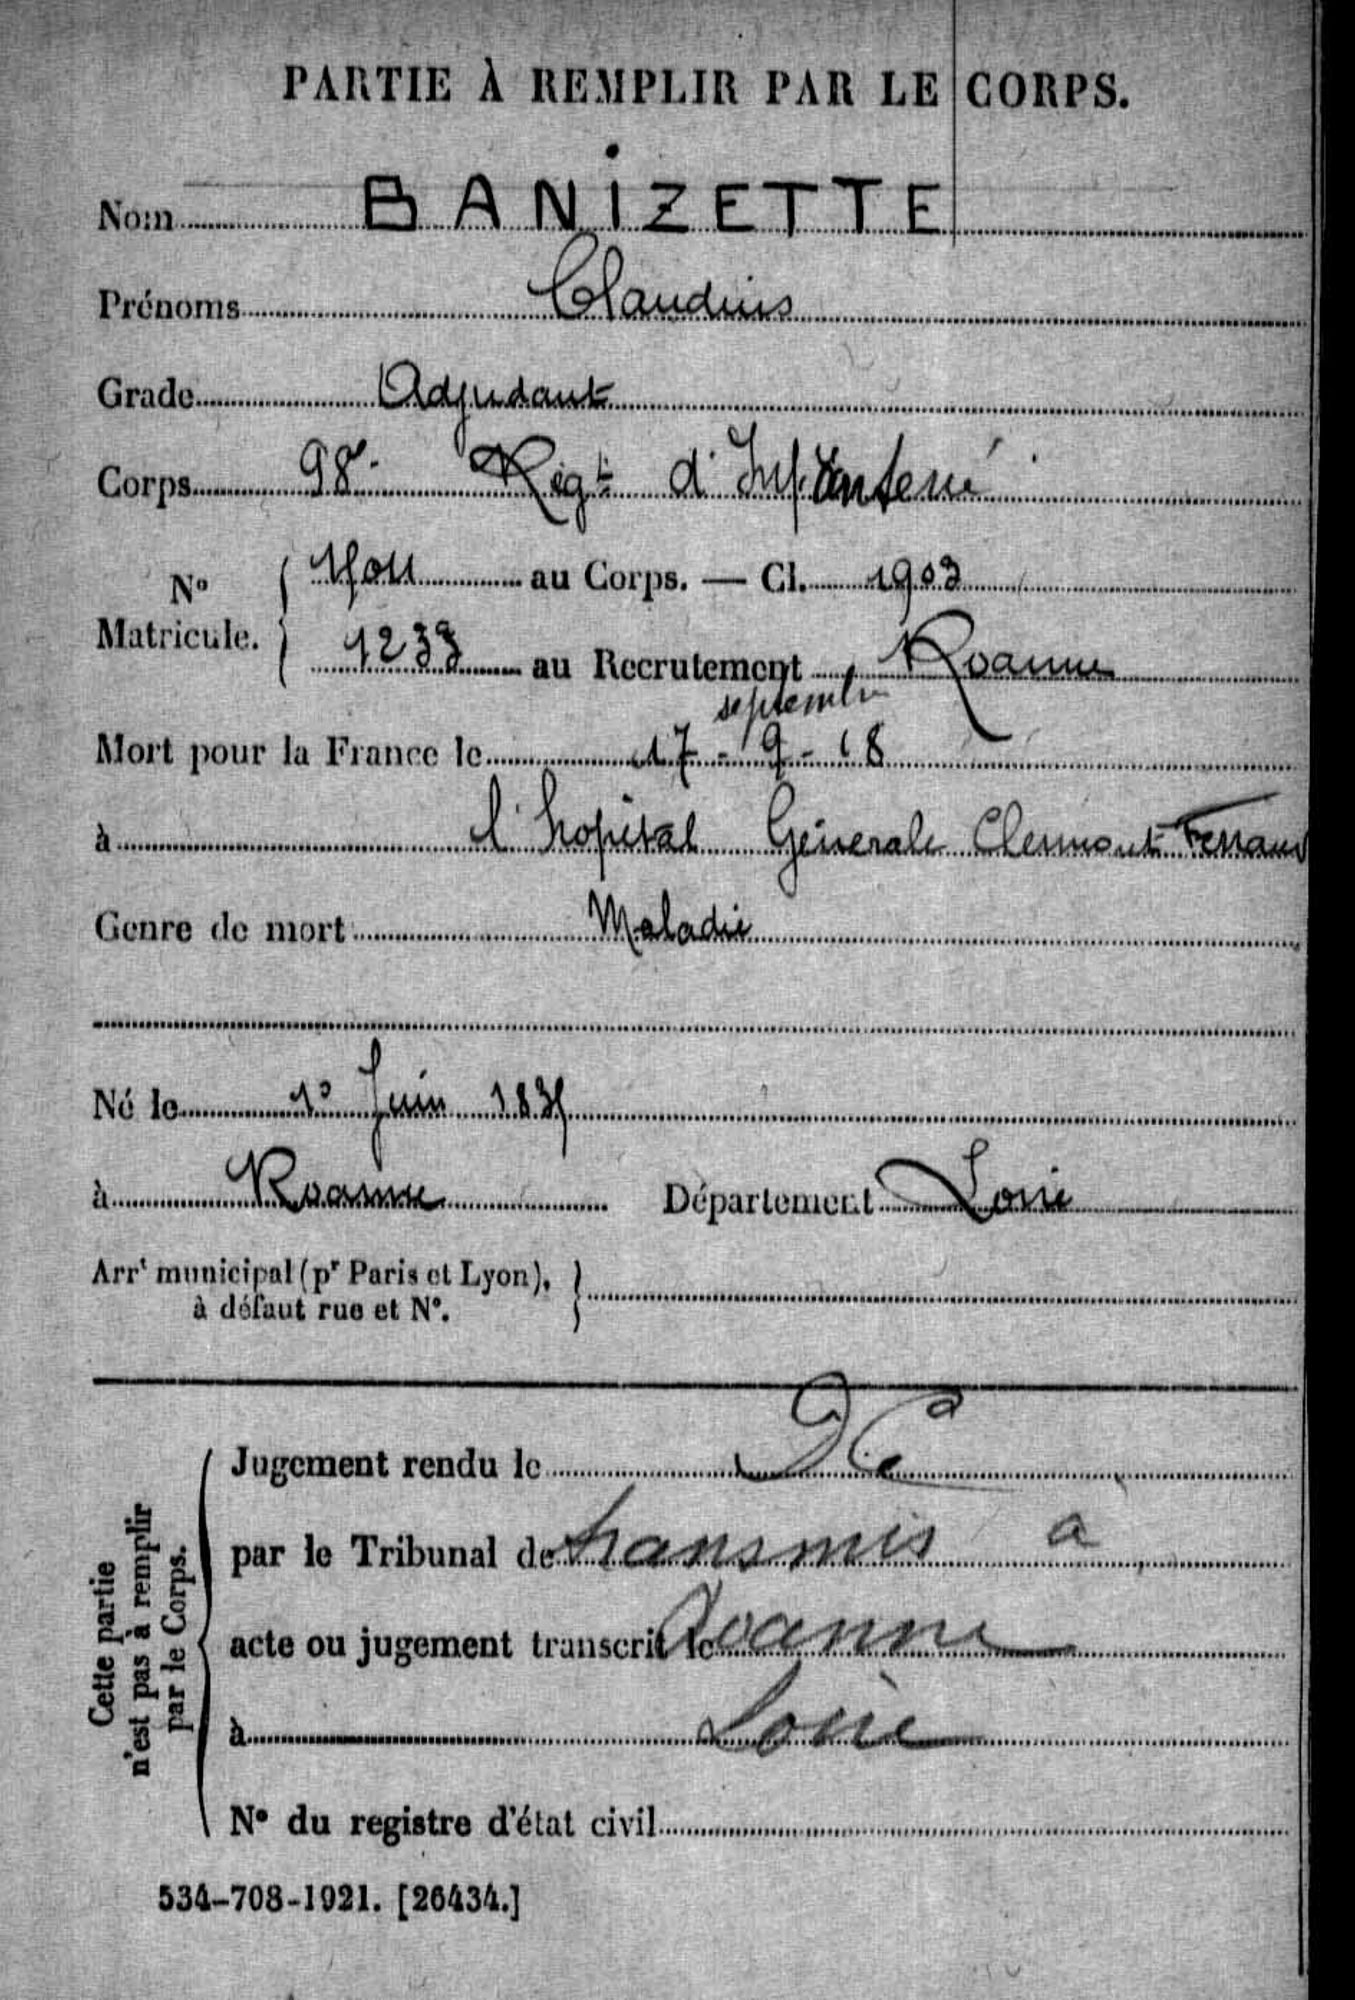 PARTIE À REMPLIR PAR LE CORPS.
Nom BANIZETTE
Prénoms Claudius
Grade Adjudant
Corps 98e Régt d'Infanterie
N° Matricule. au Corps. — Cl. 1903
1233 au Recrutement Roanne
septembre
Mort pour la France le 17-9-18
à l'hopital Générale Clermont-Ferrand
Genre de mort Maladie
Né le 1er Juin
à Roanne Département Loire
Arrt municipal (pr Paris et Lyon),
à défaut rue et N°.
Cette partie
n'est pas à remplir
par le Corps.
Jugement rendu le
par le Tribunal de transmis à
acte ou jugement transcrit le Roanne
à Loire
N° du registre d'état civil
534-708-1921. [26434.]